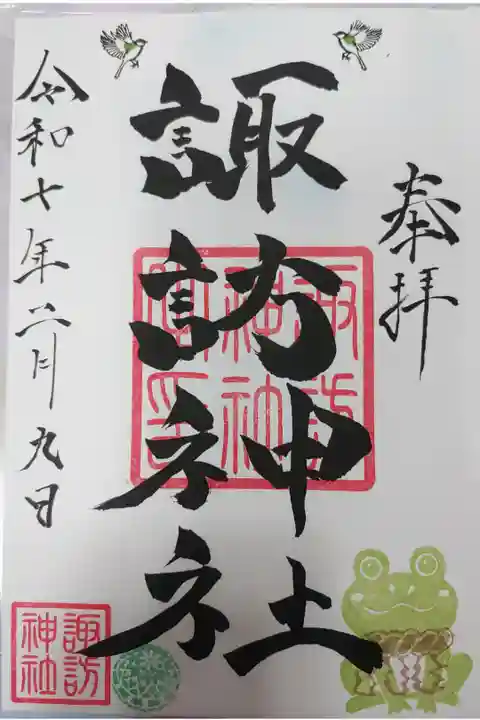 奉拝
諏訪神社
諏訪
神社
令和七年二月九日
諏訪
神社